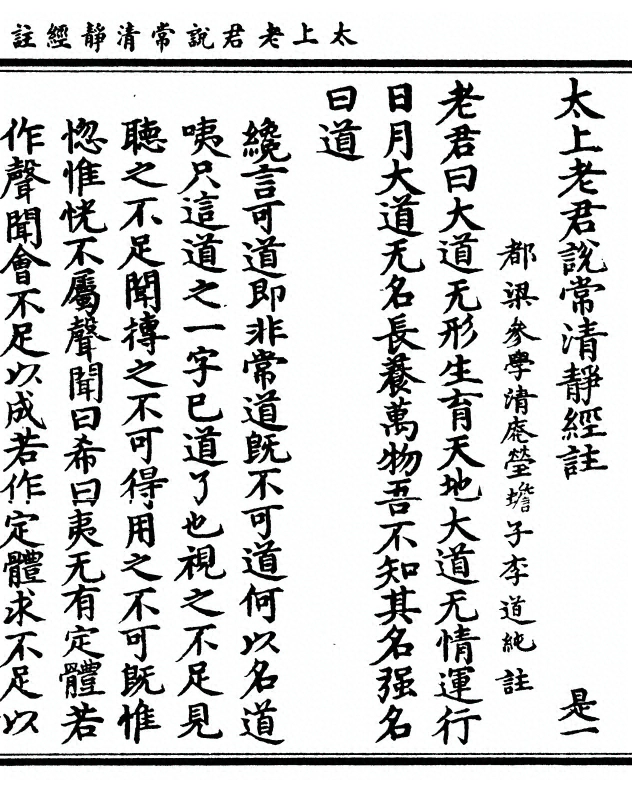 太上老君說常清靜經註
太上老君說常清靜經註
是一
都梁參學清庵瑩蟾子李道純註
老君曰大道无形生育天地大道无情運行
日月大道无名長養萬物吾不知其名强名
曰道
纔言可道即非常道旣不可道何以名道
咦只這道之一字已道了也視之不足見
聽之不足聞摶之不可得用之不可旣惟
惚惟恍不屬聲聞曰希曰夷无有定體若
作聲聞會不足以成若作定體求不足以